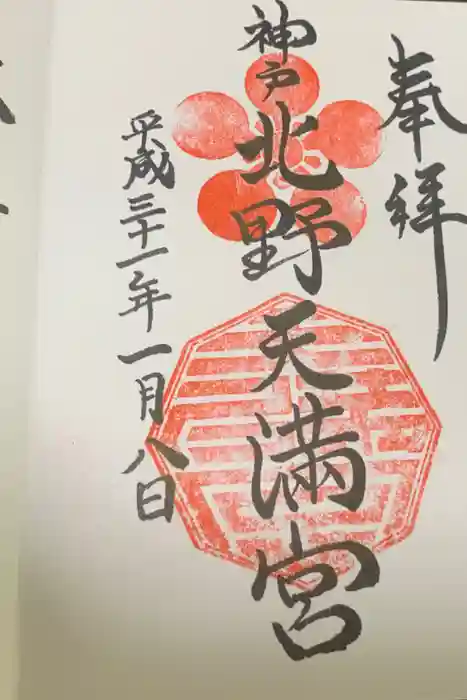 奉拝
神戸
北野天満宮
平成三十一年一月八日